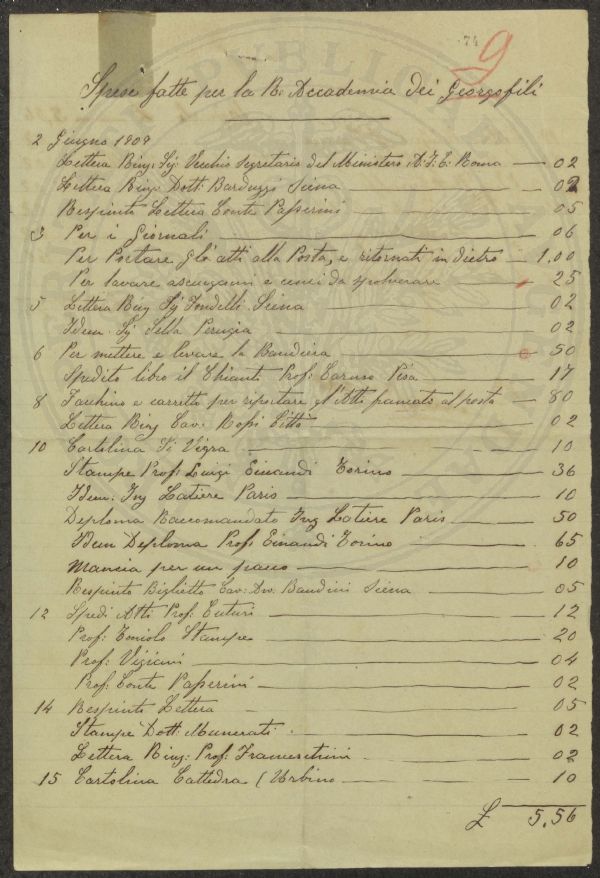 74
9
Spese fatte per la R. Accademia dei Georgofili
2 Giugno 1909
Lettera Ring: Sig: Vecchio Segretario del Ministero A. I. C. Roma — 02
Lettera Ring: Dott: Barduzzi Siena — 02
Respinto Lettera Conte Passerini — 05
3 Per i Giornali — 06
Per Portare gl'atti alla Posta, e ritornati in dietro — 1,00
Per lavare asciugani e cenci da spolverare — 25
5 Lettera Ring Sig Fondelli Siena — 02
Idem Sig Sella Perugia — 02
6 Per mettere e levare la Bandiera — 50
Spedito libro il Chianti Prof: Caruso Pisa — 17
8 Facchino e carretto per riportare gl'Atti alla posta — 80
Lettera Ring Cav: Rossi Città — 02
10 Cartolina Si Vigra — 10
Stampe Prof: Luigi Einaudi Torino — 36
Idem: Ing Latiere Paris — 10
Deploma Raccomandato Ing Latiere Paris — 50
Idem Deploma Prof: Einaudi Torino — 65
Mancia per un pacco — 10
Respinto Biglietto Cav: Bandini Siena — 05
12 Spedi Atti Prof: Cuturi — 12
Prof: Toniolo Stampe — 20
Prof: Vigiani — 04
Prof. Conte Passerini — 02
14 Respinto Lettera — 05
Stampe Dott: Munerati — 02
Lettera Ring: Prof: Franceschini — 02
15 Cartolina Cattedra (Urbino — 10
£ 5,56